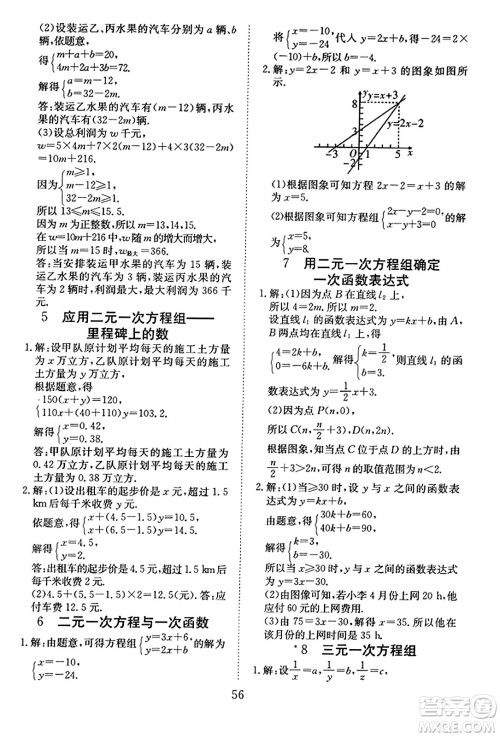 (2)设装运乙、丙水果的汽车分别为 a 辆、b 辆.
依题意,
{m+a+b=20,
4m+2a+3b=72.
解得{a=m-12,
b=32-2m.
答:装运乙水果的汽车有(m-12)辆,丙水果的汽车有(32-2m)辆.
(3)设总利润为 w 千元.
w=5×4m+7×2(m-12)+4×3(32-2m)
=10m+216.
因为{m≥1,
m-12≥1,
32-2m≥1,
所以 13≤m≤15.5.
因为 m 为正整数,所以 m=13,14,15.
在 w=10m+216 中,w 随 m 的增大而增大.
所以当 m=15 时,w最大=366.
答:当安排装运甲水果的汽车为 15 辆,装运乙水果的汽车为 3 辆,装运丙水果的汽车为 2 辆时,利润最大,最大利润为 366 千元.
5 应用二元一次方程组——
里程碑上的数
1.解:设甲队原计划平均每天的施工土方量为 x 万立方,乙队原计划平均每天的施工土方量为 y 万立方.
根据题意,得
{150(x+y)=120,
110(x+y)+40y=103.2.
解得{x=0.42,
y=0.38.
答:甲队原计划平均每天的施工土方量为 0.42 万立方,乙队原计划平均每天的施工土方量为 0.38 万立方.
2.解:(1)设出租车的起步价是 x 元,超过 1.5 km 后每千米收费 y 元.
依题意,得{x+(4.5-1.5)y=10.5,
x+(6.5-1.5)y=14.5.
解得{x=4.5,
y=2.
答:出租车的起步价是 4.5 元,超过 1.5 km 后每千米收费 2 元.
(2)4.5+(5.5-1.5)×2=12.5(元).答:应付车费 12.5 元.
6 二元一次方程与一次函数
1.解:由题意,可得{y=3x+6,
y=2x-4,
解得{x=-10,
y=-24.
将{x=-10,
y=-24
(1)所以 -24=-10a+a.
2.解:y=x+3 和 y=2x-2 的图象如图所示.
y y=2x-2
8 y=x+3
-3 O 5 x
-2
(1)根据图象可知方程组 2x-2=x+3 的解为 x=5.
(2)根据图象可知方程组{2x-y=2,
x-y=-3
的解为{x=5,
y=8.
7 用二元一次方程组确定
一次函数表达式
1.解:(1)因为点 B 在直线 l₂ 上,
所以 4=2m.所以 m=2.
设直线 l₁ 的函数表达式为 y=kx+b.
所以{4=2k+b,
0=-6k+b,
解得{k=1/2,
b=3.
则直线 l₁ 的函数表达式为 y=1/2x+3.
(2)因为点 P(n,0),
所以 C(n,n/2+3),D(n,2n).
根据图象,可知当点 C 位于点 D 上方时,
n/2+3>2n,所以点 n 的取值范围为 n<2.
2.解:(1)当 x≥30 时,设 y 与 x 之间的函数表达式为 y=kx+b.
由题意,得{30k+b=60,
40k+b=90,
解得{k=3,
b=-30.
所以当 x≥30 时,y 与 x 之间的函数表达式为 y=3x-30.
(2)由图像可知,若小李 4 月份上网 20 h,他应付 60 元的上网费用.
(3)由 75=3x-30,得 x=35.所以他在该月份的上网时间为 35 h.
*8 三元一次方程组
1.解:设 1/x=a,1/y=b,1/z=c,
56